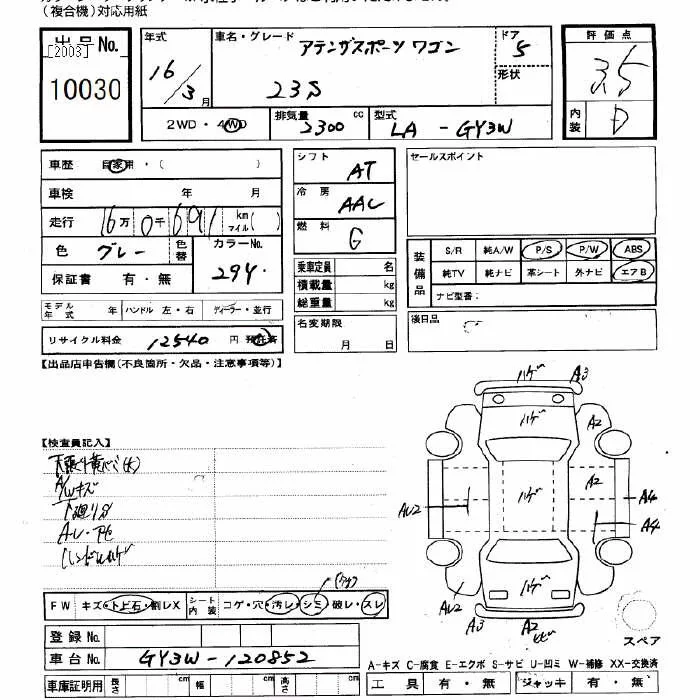 (複合機)対応用紙
出品No.
[2003]
10030
年式
16/3月
車名・グレード
アテンザスポーツ ワゴン
23S
ドア
5
形状
2WD・4WD
排気量
2300 cc
型式
LA - GY3W
評価点
3.5
内装
D
車歴 自家用・( )
車検 年 月
走行 16万0千691 km マイル( )
色 グレー 色替 カラーNo. 294
保証書 有・無
モデル年式 年 ハンドル 左・右 ディーラー・並行
リサイクル料金 12540 円 預託済
シフト AT
冷房 AAC
燃料 G
乗車定員 名
積載量 kg
総重量 kg
名変期限
月 日
セールスポイント
装備品
S/R 純A/W P/S P/W ABS
純TV 純ナビ 革シート 外ナビ エアB
ナビ型番:
後日品
【出品店申告欄(不良箇所・欠品・注意事項等)】
【検査員記入】
A/Wキズ
下廻りサビ
ハンドルハゲ
FW キズ・トビ石・割レX
シート内装 コゲ・穴・汚レ・シミ・破レ・スレ
登録No.
車台No. GY3W-120852
車庫証明用 長さ cm 幅 cm 高さ cm
ハゲ A3
ハゲ A2
ハゲ A2
AU2 A4
A4
ハゲ
AU2
A3 A2
スペア
A-キズ C-腐食 E-エクボ S-サビ U-凹ミ W-補修 XX-交換済
工具 有・無 ジャッキ 有・無